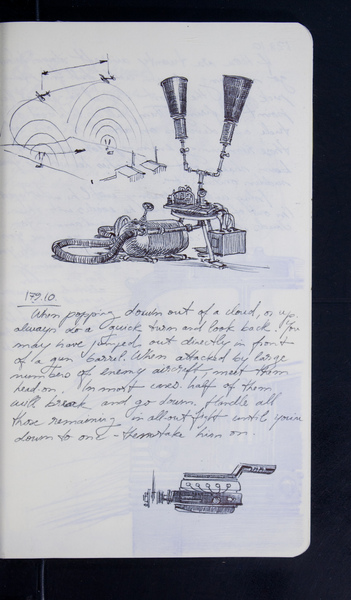 179.10.
When popping down out of a cloud, or up
always do a quick turn and look back. You
may have jumped out directly in front
of a gun barrel. When attacked by large
numbers of enemy aircraft, meet them
head on. In most cases half of them
will break and go down. Handle all
those remaining in all-out fight until you're
down to one - then take him on.